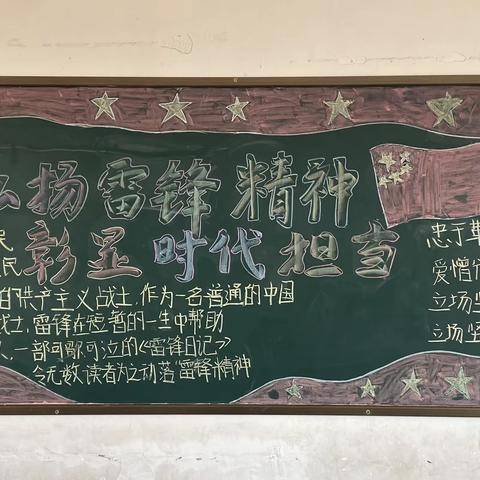 弘扬雷锋精神
彰显时代担当
民
民
的共产主义战士,作为一名普通的中国
战士,雷锋在短暂的一生中帮助
人,一部可歌可泣的《雷锋日记》
令无数读者为之动落"雷锋精神
忠于革
爱憎
立场坚
立场坚